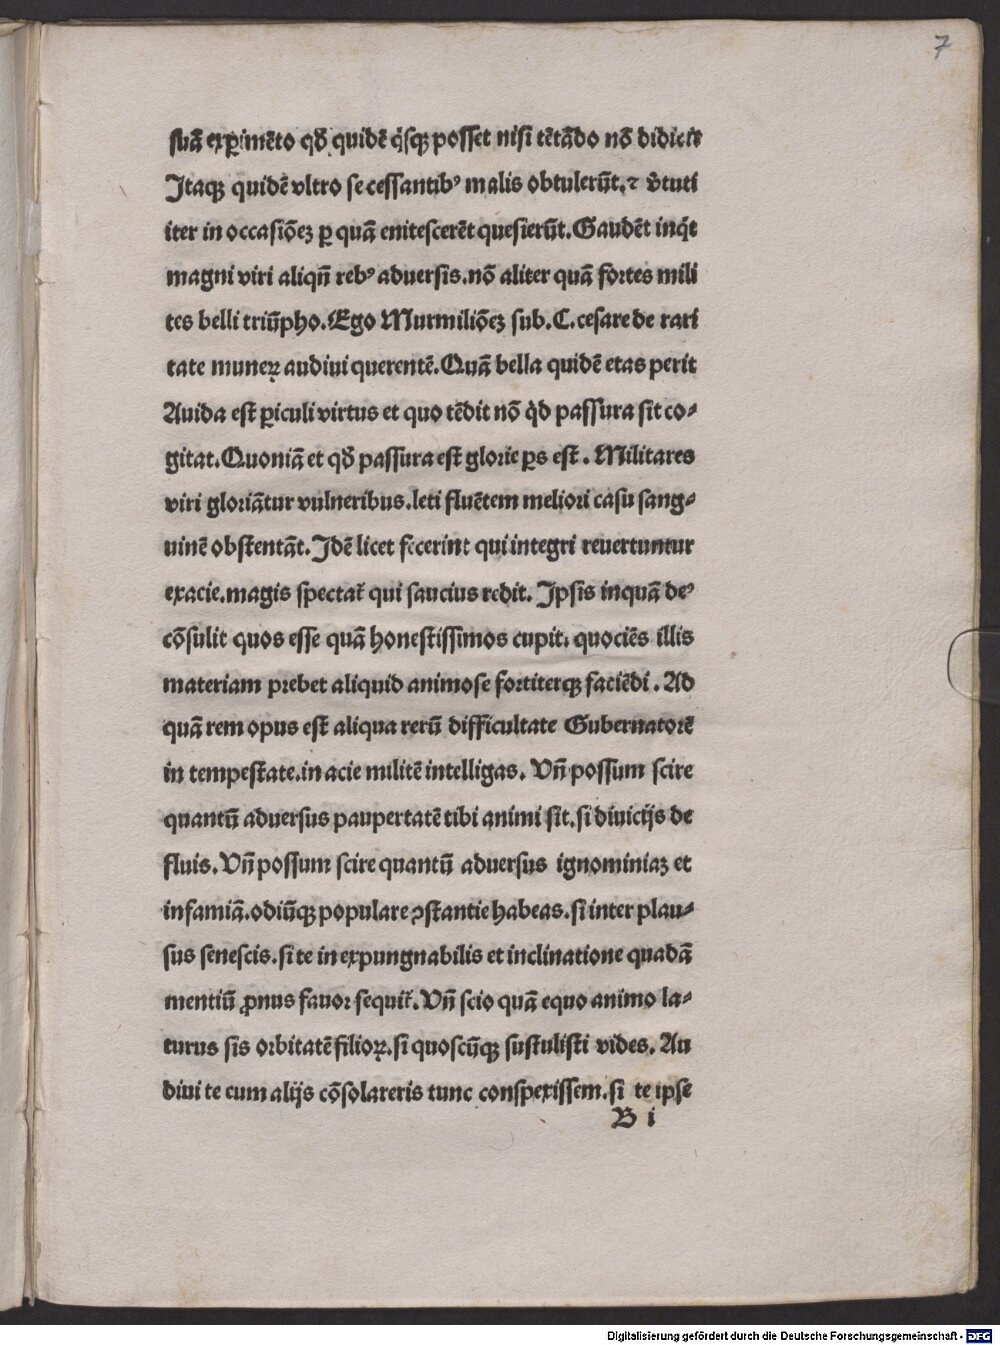 7
suã exꝑimẽto qđ quidẽ q̇sqꝫ posset nisi tẽtãdo nõ didicit
Itaqꝫ quidẽ vltro se cessantibꝰ malis obtulerũt.⁊ v̾tuti
iter in occasiõeꝫ ꝑ quã enitescerẽt quesierũt.Gaudẽt inq̇t
magni viri aliqñ rebꝰ aduersis.nõ aliter quã fortes mili
tes belli triũpho.Ego Murmiliõeꝫ sub.C.cesare de rari
tate muneꝝ audiui querentẽ.Quã bella quidẽ etas perit
Auida est ꝑiculi virtus et quo tẽdit nõ q̇d passura sit co⸗
gitat.Quoniã et qđ passura est glorie ꝑs est. Militares
viri gloriãtur vulneribus.leti fluẽtem meliori casu sang⸗
uinẽ obstentãt.Idẽ licet fecerint qui integri reuertuntur
exacie.magis spectat̃ qui saucius redit. Ipsis inquã deꝰ
cõsulit quos esse quã honestissimos cupit. quociẽs illis
materiam prebet aliquid animose fortiterqꝫ faciẽdi. Ad
quã rem opus est aliqua rerũ difficultate Gubernatorẽ
in tempestate.in acie militẽ intelligas. Vñ possum scire
quantũ aduersus paupertatẽ tibi animi sit.si diuicijs de
fluis.Vñ possum scire quantũ aduersus ignominiaꝫ et
infamiã.odiũqꝫ populare ꝯstantie habeas.si inter plau⸗
sus senescis.si te in expungnabilis et inclinatione quadã
mentiũ ꝓnus fauor sequit̃.Vñ scio quã equo animo la⸗
turus sis orbitatẽ filioꝝ.si quoscũqꝫ sustulisti vides. Au
diui te cum alijs cõsolareris tunc conspexissem.si te ipse
B i
Digitalisierung gefördert durch die Deutsche Forschungsgemeinschaft - DFG